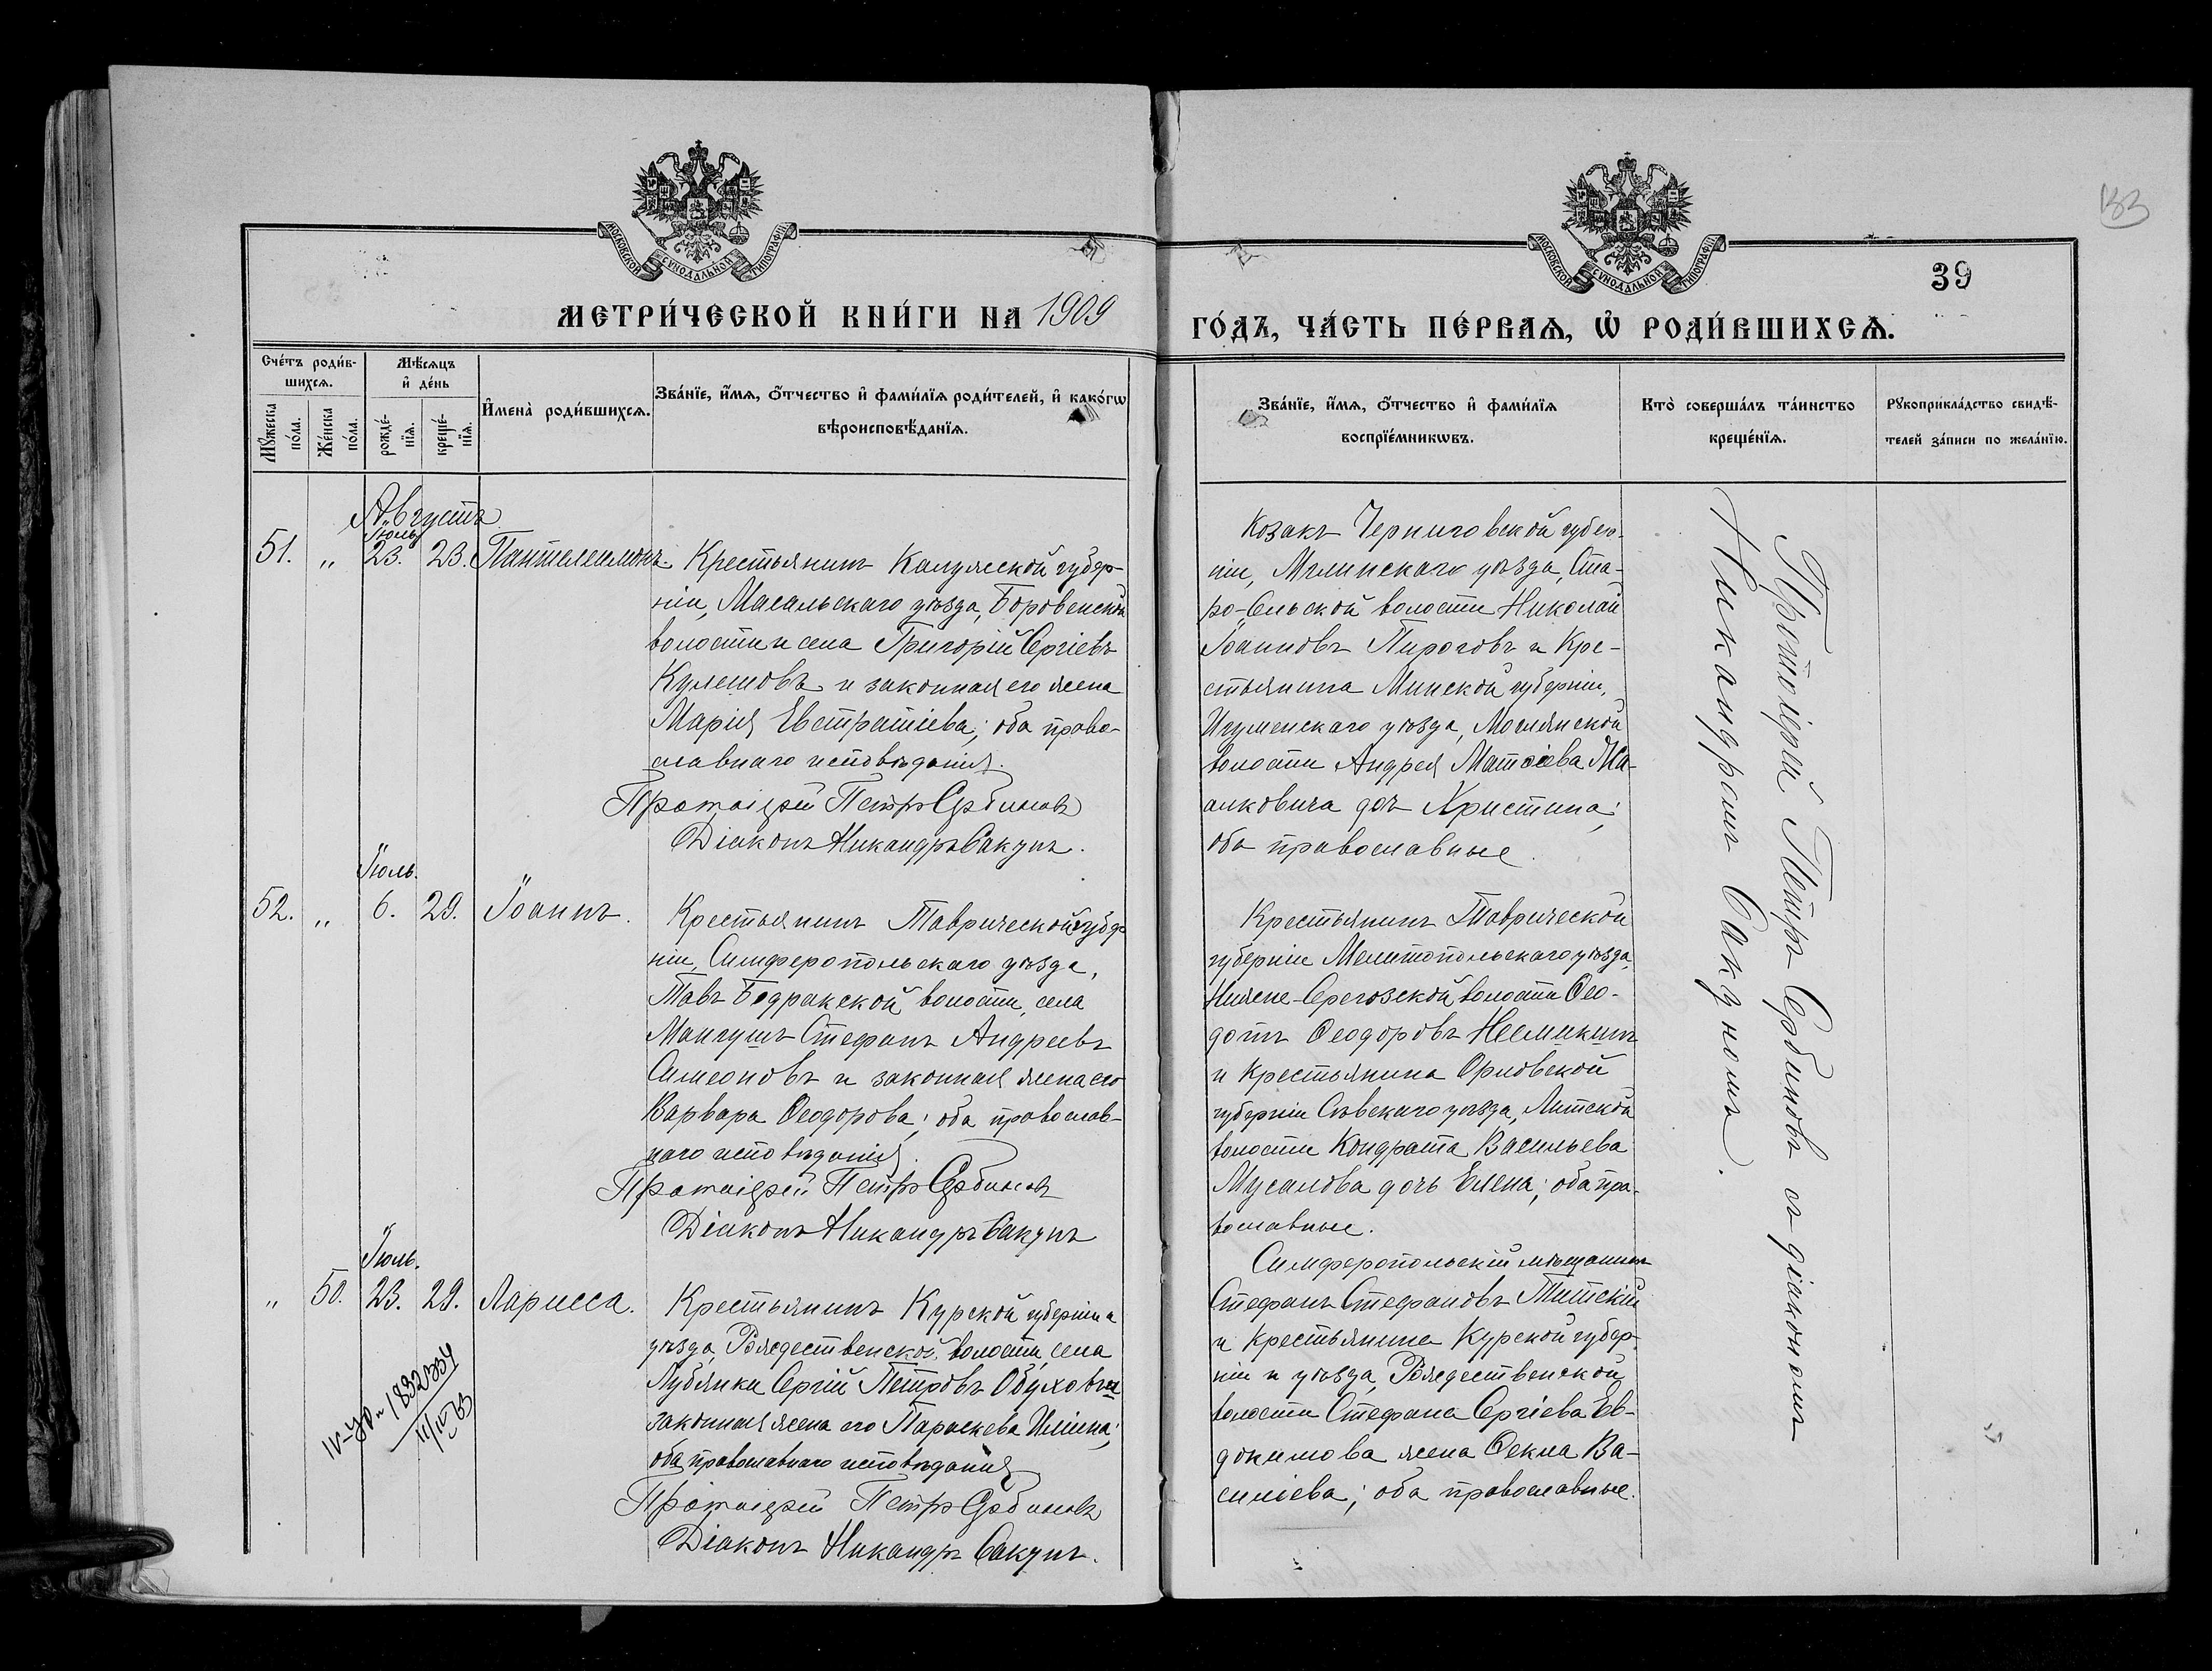 133
39
МОСКОВСКОЙ СѴНОДАЛЬНОЙ ТИПОГРАФІИ
МОСКОВСКОЙ СѴНОДАЛЬНОЙ ТИПОГРАФІИ
МЕТРИ́ЧЕСКОЙ КНИ́ГИ НА 1909
ГО́ДЪ, ЧА́СТЬ ПЕ́РВАѦ, Ѡ҆ РОДИ́ВШИХСѦ.
Сче́тъ роди́в-
шихсѧ.
Мѣ́сѧцъ
и҆ де́нь
Мꙋ́жеска
по́ла.
Же́нска
по́ла.
рожде́-
нїѧ.
креще́-
нїѧ.
И҆мена̀ роди́вшихсѧ.
Зва́нїе, и҆́мѧ, ѻ҆́тчество и҆ фами́лїѧ роди́телей, и҆ како́гѡ
вѣроисповѣ́данїѧ.
Зва́нїе, и҆́мѧ, ѻ҆́тчество и҆ фами́лїѧ
воспрїе́мникѡвъ.
Кто̀ соверша́лъ та́инство
креще́нїѧ.
Рꙋкоприкла́дство свидѣ́-
телей за́писи по жела́нїю.
Августъ
Іюль
51. „ 23. 23. Пантелеимонъ.
Крестьянинъ Калужской губер-
ніи, Масальскаго уѣзда, Боровенской
волости и села Григорій Сергіевъ
Кулешовъ и законная его жена
Марія Евстратіева; оба право-
славнаго исповѣданія.
Протоіерей Петръ Сербиновъ
Діаконъ Никандръ Сакунъ.
Козакъ Черниговской губер-
ніи, Мглинскаго уѣзда, Ста-
ро-Сельской волости Николай
Іоанновъ Пироговъ и Кре-
стьянина Минской губерніи,
Игуменскаго уѣзда,
волости Андрея
дочь Христина;
оба православные.
Іюль.
52. „ 6. 29. Іоаннъ.
Крестьянинъ Таврической губер-
ніи, Симферопольскаго уѣзда,
Тавъ Бодракской волости, села
Мангушъ Стефанъ Андреевъ
Симеоновъ и законная жена его
Варвара Ѳеодорова; оба православ-
наго исповѣданія.
Протоіерей Петръ Сербиновъ
Діаконъ Никандръ Сакунъ
Крестьянинъ Таврической
губерніи Мелитопольскаго уѣзда,
Нижне-Серогозской волости Ѳео-
дотъ Ѳеодоровъ
и Крестьянина Орловской
губерніи Сѣвскаго уѣзда,
волости Кондрата Васильева
Мусалова дочь Елена; оба пра-
вославные.
Іюль.
„ 50. 23. 29. Ларисса.
Крестьянинъ Курской губерніи и
уѣзда, Рождественской волости, села
Лубянки Сергій Петровъ Обуховъ и
законная жена его Параскева Иліина;
оба православнаго исповѣданія
Протоіерей Петръ Сербиновъ
Діаконъ Никандръ Сакунъ.
Симферопольскій мѣщанинъ
Стефанъ Стефановъ
и Крестьянина Курской губер-
ніи и уѣзда, Рождественской
волости Стефана Сергіева Ев-
докимова жена Ѳекла Ва-
силіева; оба православные.
Протоіерей Петръ Сербиновъ съ діакономъ
Никандромъ Сакуномъ.